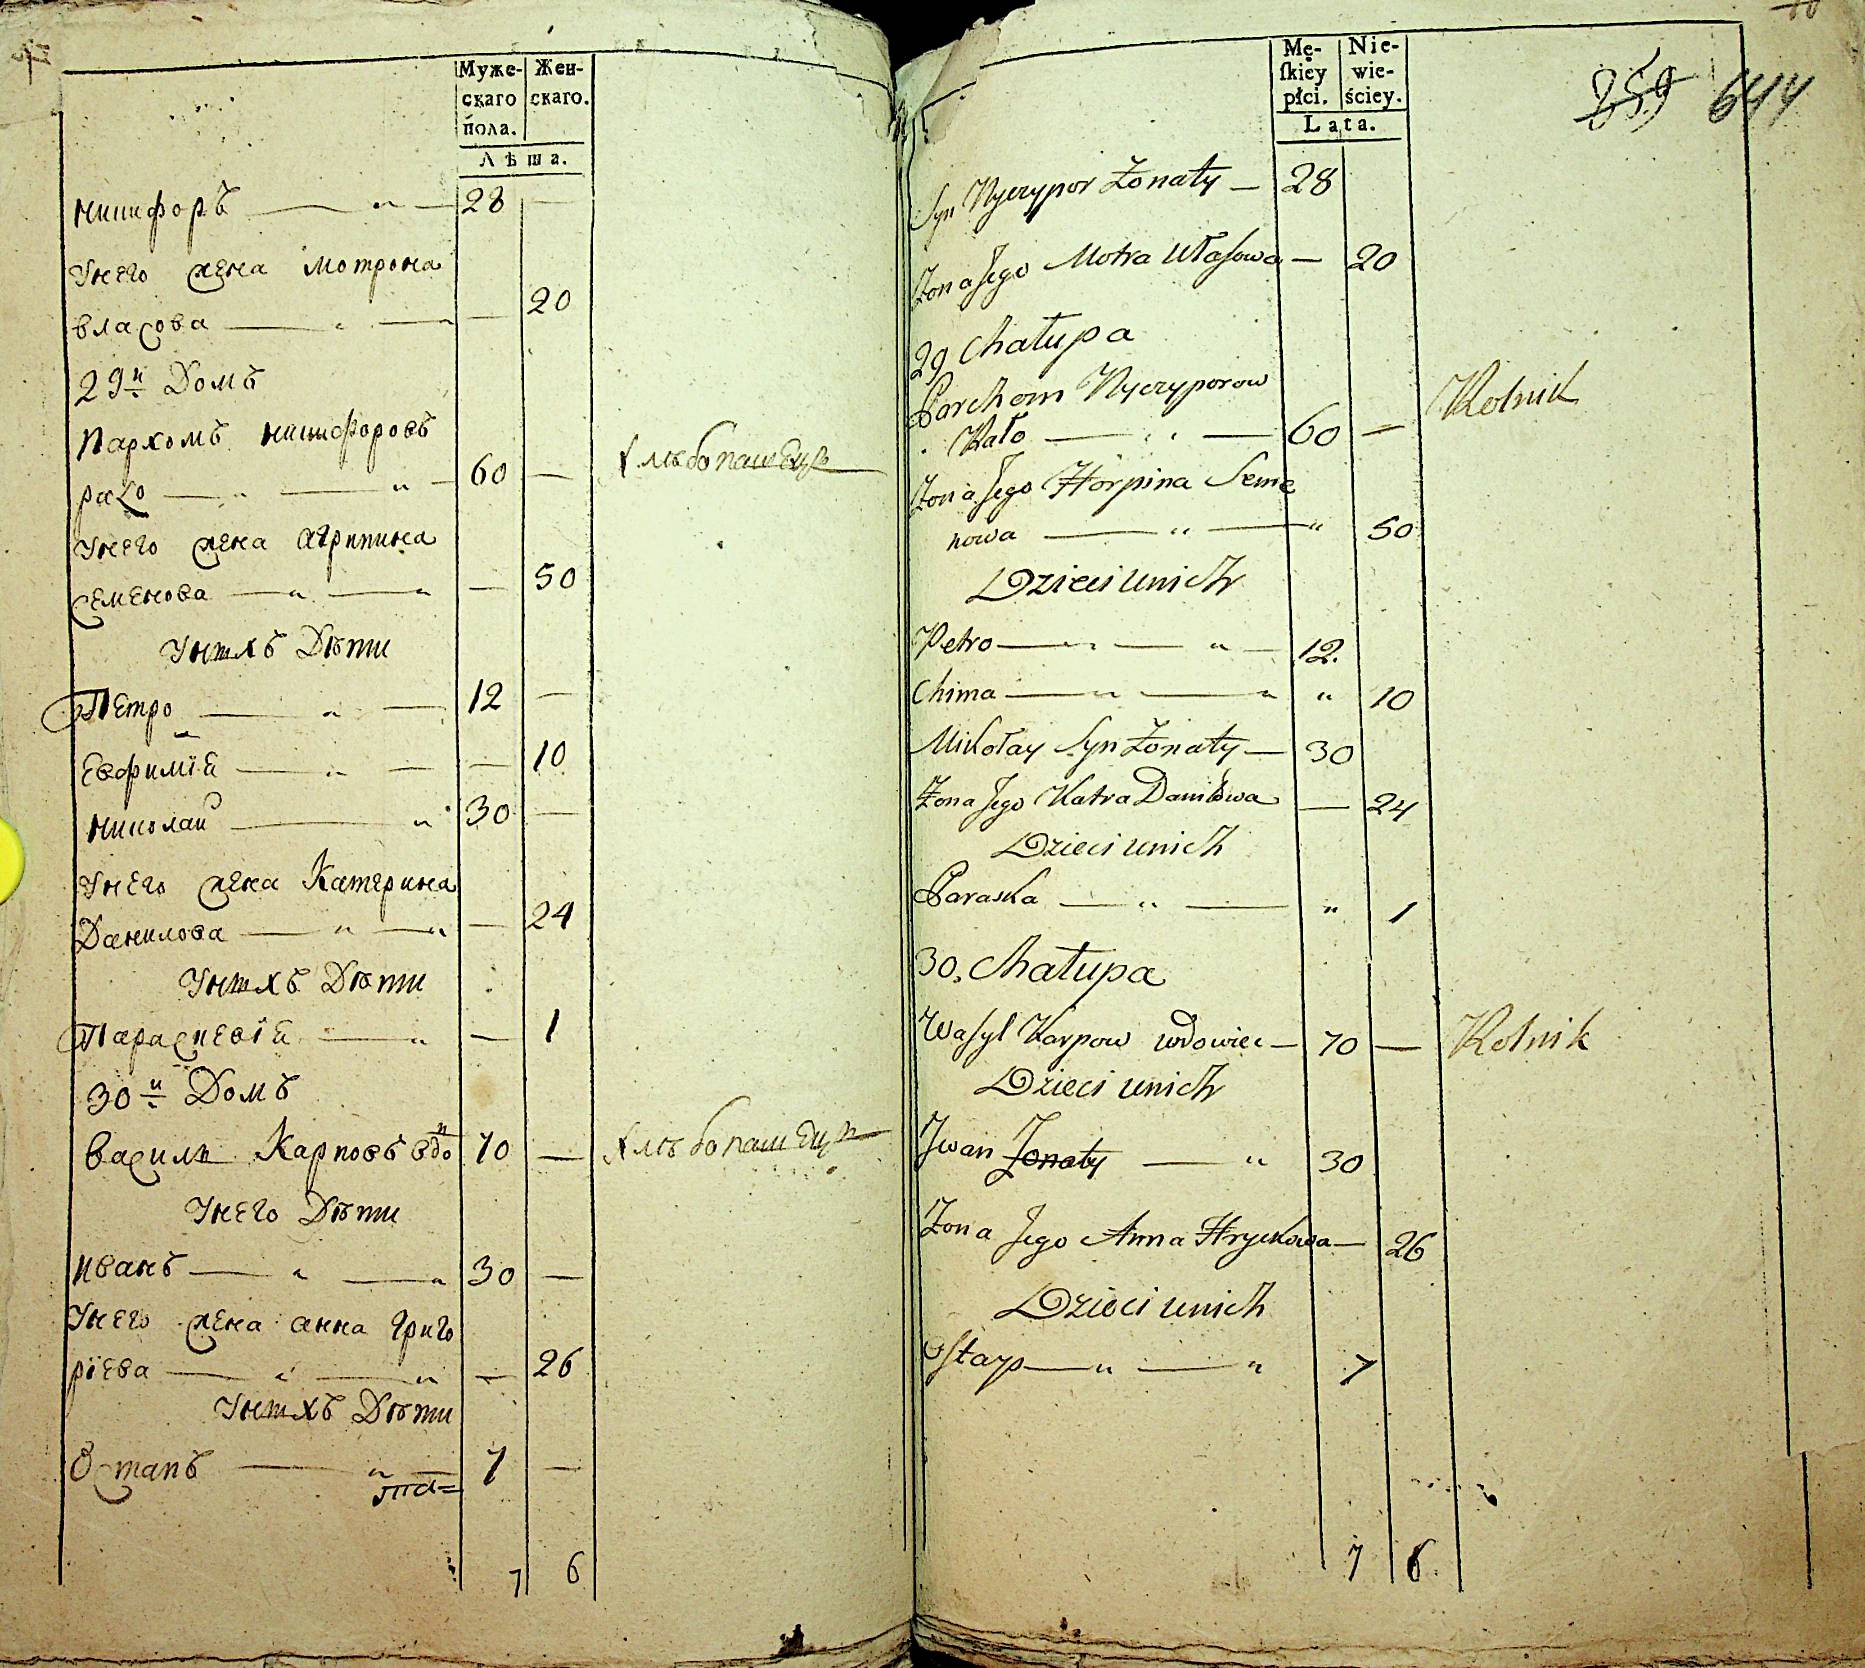 Муже-
скаго
пола.
Жен-
скаго.
Лѣта.
никифоръ 28 —
Унего жена мотрона
власова — 20
29й Домъ
Пархомъ никифоровъ
рало 60 — Хлѣбопашецъ
Унего жена агрипина
семенова — 50
Унихъ Дѣти
Петро 12 —
Евфимія — 10
николай 30 —
Унего жена Катерина
Данилова — 24
Унихъ Дѣти
Параскевія — 1
30й Домъ
василь Карповъ вдо 70 — Хлѣбопашецъ
Унего Дѣти
иванъ 30 —
Унего жена анна григо
ріева — 26
Унихъ Дѣти
Остапъ 7 —
7 6
Mę-
skiey
płci.
Nie-
wie-
ściey.
Lata.
259 644
Syn Nyczypor Żonaty — 28
Żona Jego Motra Własowa — 20
29 Chałupa
Parchom Nyczyporow
Rało 60 — Rolnik
Żona Jego Horpina Seme
nowa 50
Dzieci unich
Petro 12.
Chima 10
Mikołay Syn Żonaty — 30
Żona Jego Katra Daniłowa — 24
Dzieci unich
Paraska 1
30. Chałupa
Wasyl Karpow wdowiec — 70 — Rolnik
Dzieci unich
Jwan Żonaty 30
Żona Jego Anna Hryckowa — 26
Dzieci unich
Ostap 7
7 6